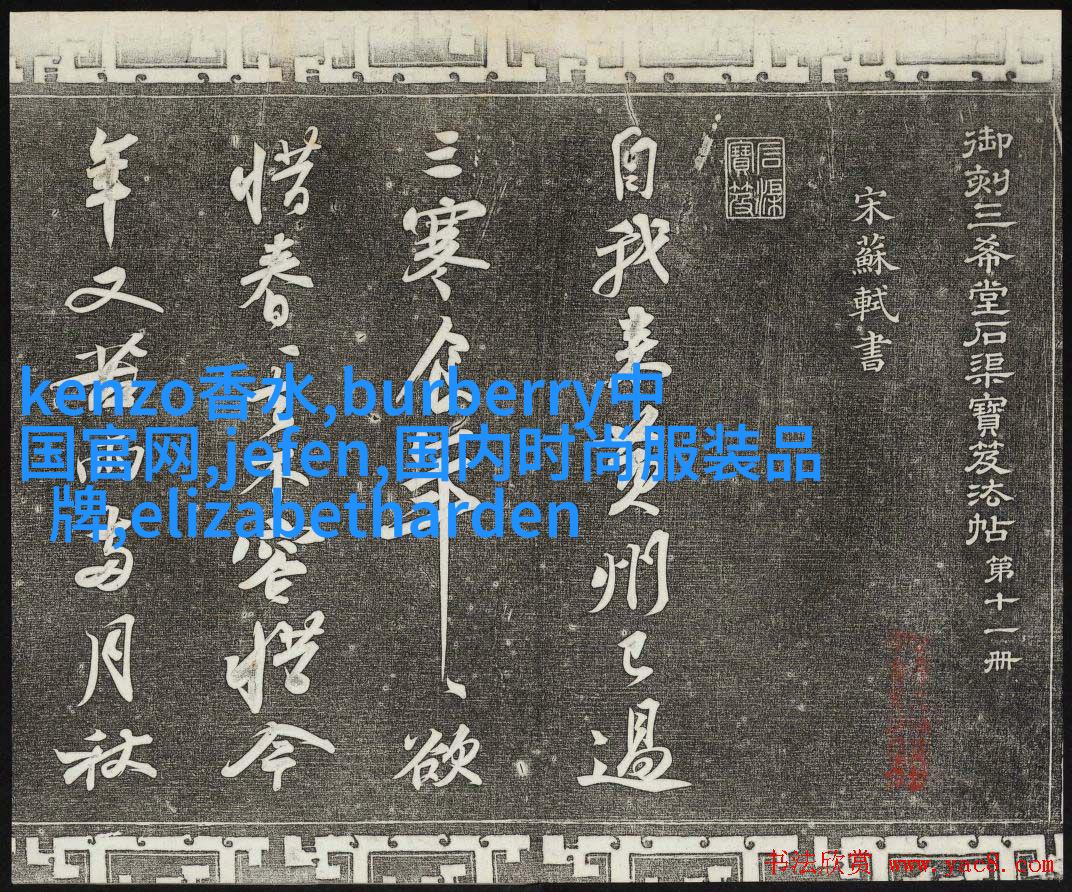 御刻三希堂石渠寶笈法帖 第十一册
宋蘇軾書
石渠寶笈
自我来黄州已過
三寒食年年欲
惜春春去不容惜今
年又苦雨兩月秋
kenzo香水,burberry中
国官网,jefen,国内时尚服装品
牌,elizabetharden
书法欣赏 www.yac8.com